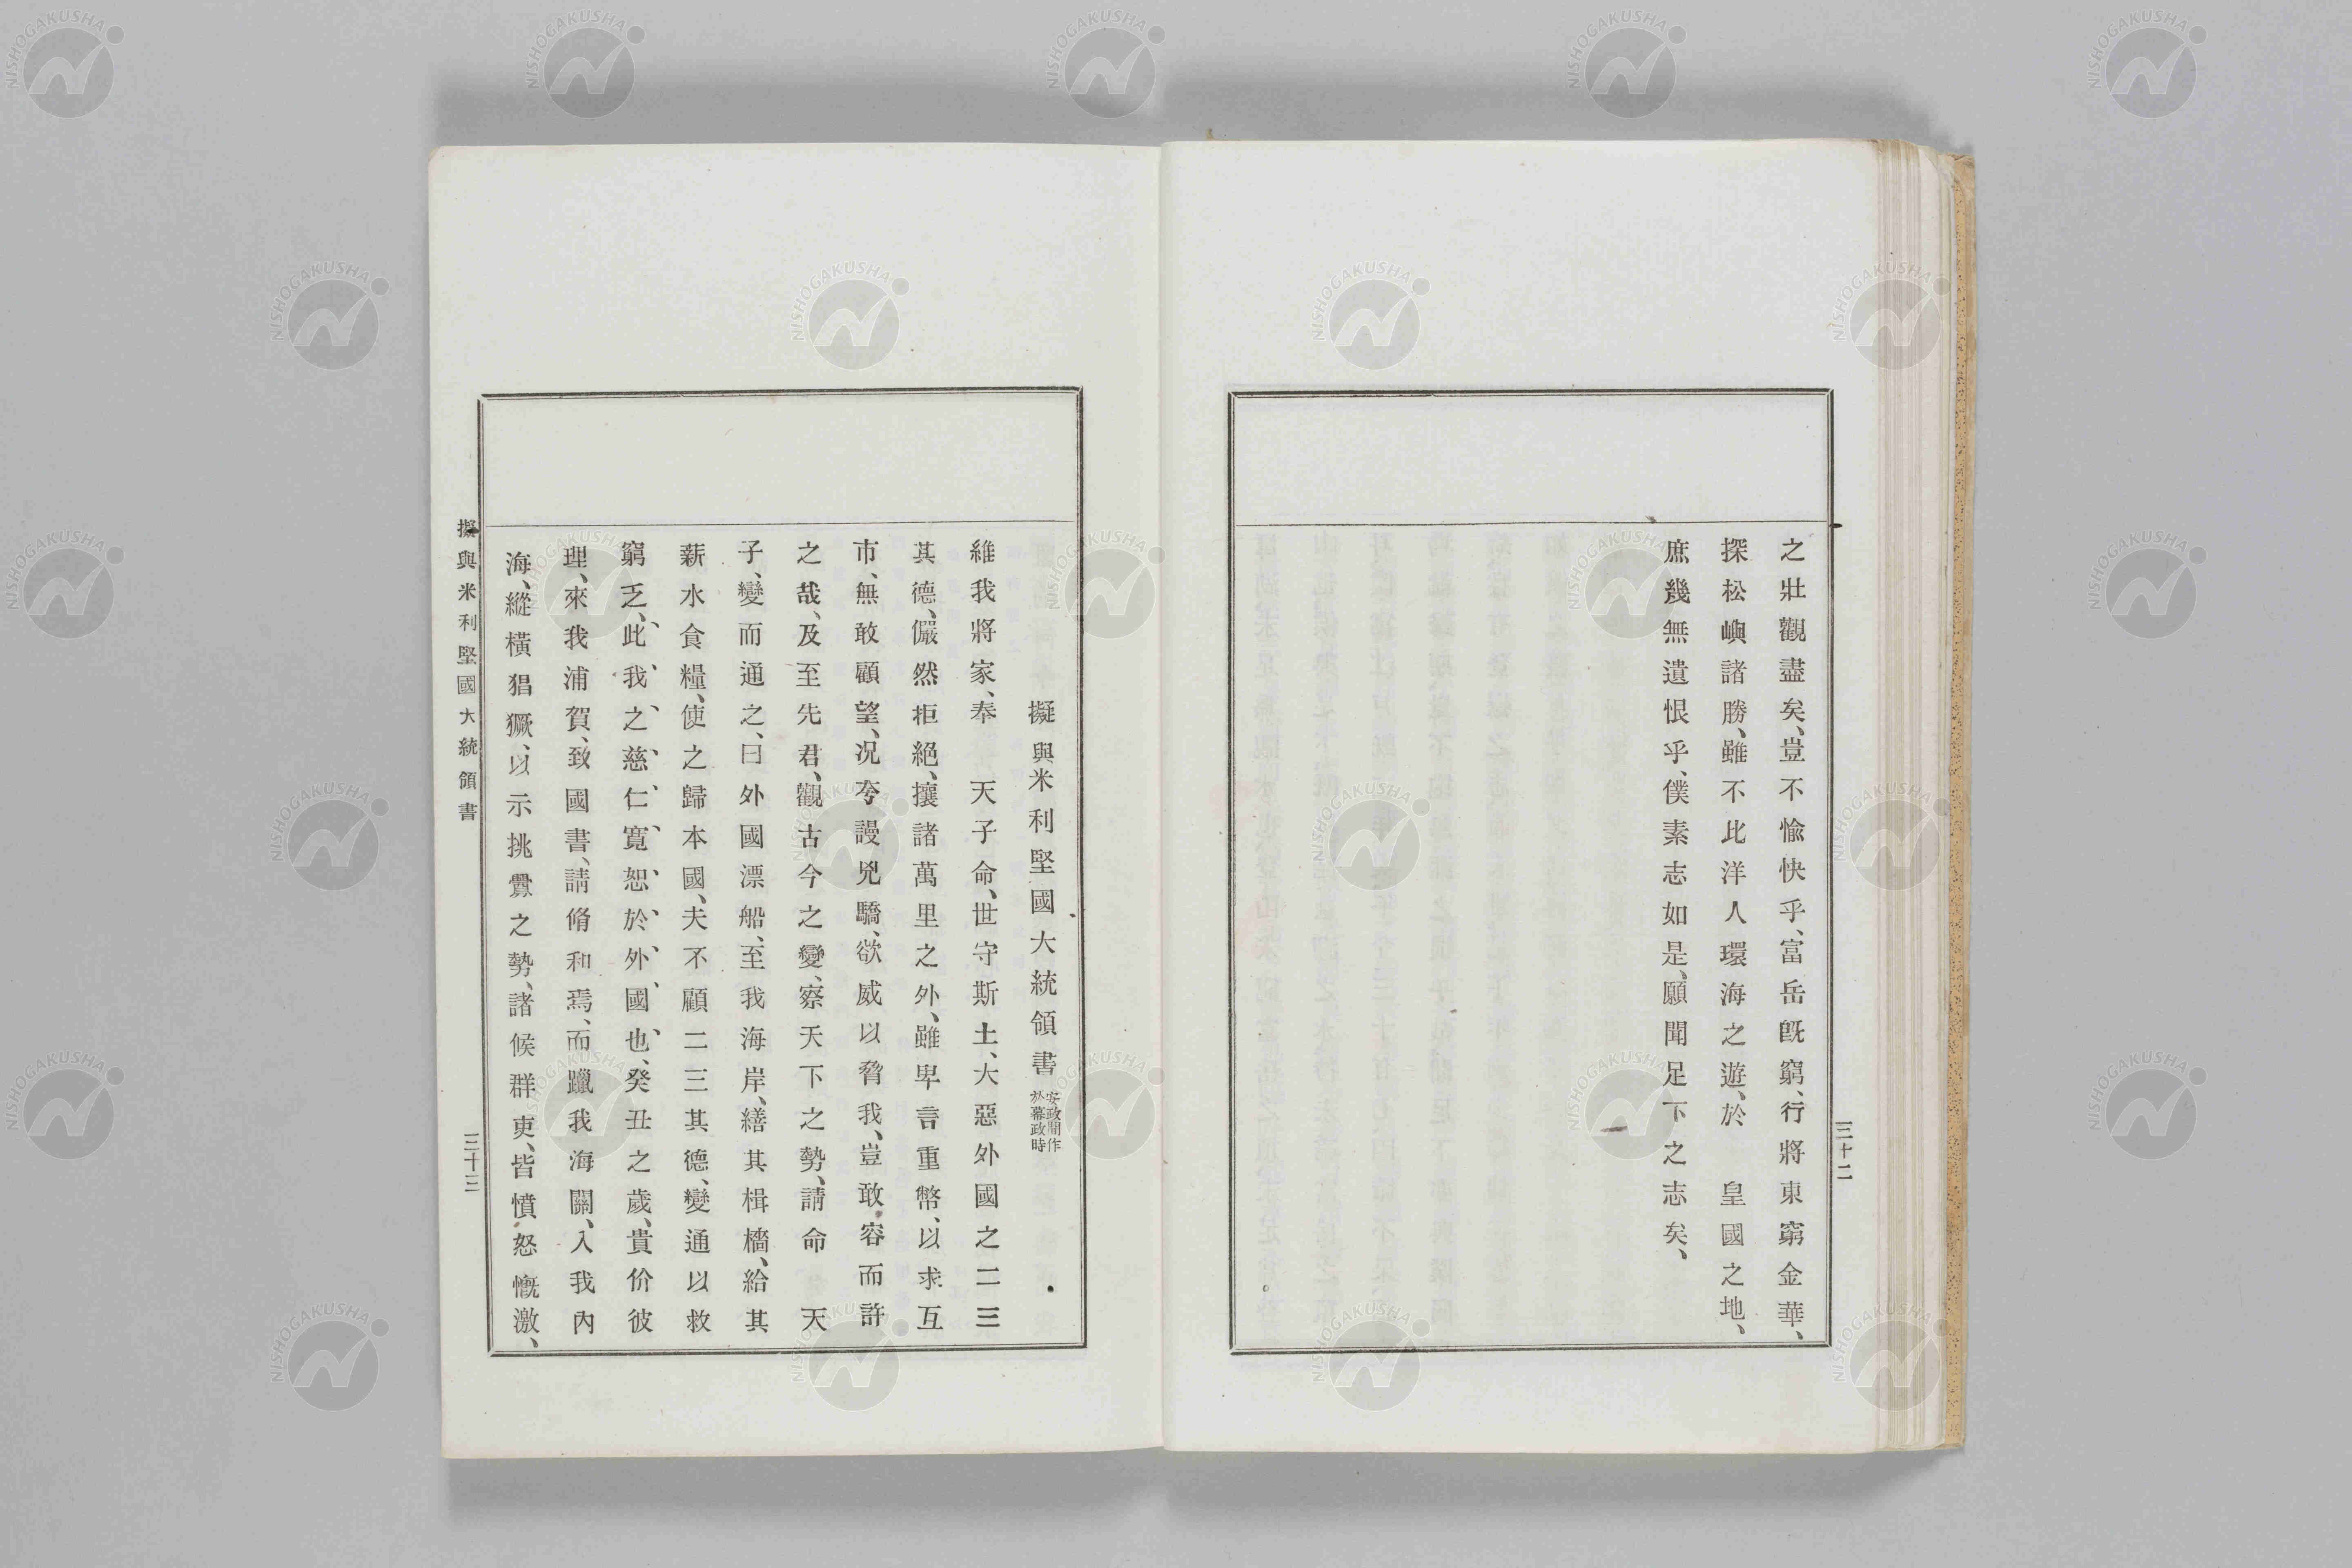 之壯觀盡矣、豈不愉快乎、富岳旣窮、行將東窮金華、
探松嶼諸勝、雖不比洋人環海之遊、於　皇國之地、
庶幾無遺恨乎、僕素志如是、願聞足下之志矣、
三十二
擬與米利堅國大統領書 安政開作於幕政時
維我將家、奉　天子命、世守斯土、大惡外國之二三
其德、儼然拒絕、攘諸萬里之外、雖卑言重幣、以求互
市、無敢顧望、況夸謾兇驕、欲威以脅我、豈敢容而許
之哉、及至先君、觀古今之變、察天下之勢、請命　天
子、變而通之、曰外國漂船、至我海岸、繕其楫檣、給其
薪水食糧、使之歸本國、夫不顧二三其德、變通以救
窮乏、此我之慈仁寬恕於外國也、癸丑之歲、貴价彼
理、來我浦賀、致國書、請脩和焉、而躐我海關、入我內
海、縱橫猖獗、以示挑釁之勢、諸候群吏、皆憤怒慨激、
擬與米利堅國大統領書
三十三
NISHOGAKUSHA